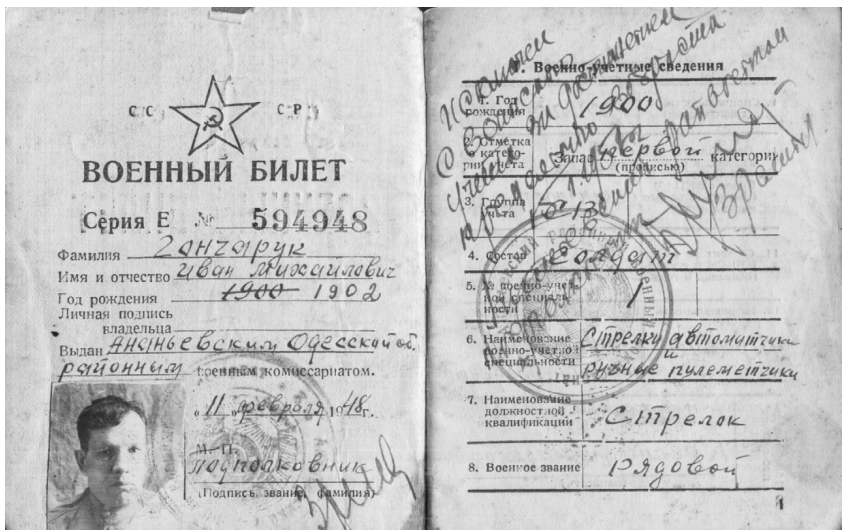 СССР
ВОЕННЫЙ БИЛЕТ
Серия Е № 594948
Фамилия Ганчарук
Имя и отчество Иван Михайлович
Год рождения 1900 1902
Личная подпись
владельца
Выдан Ананьевским Одесской об.
районным военным комиссариатом.
"11" февраля 1948 г.
М. П.
подполковник
(Подпись, звание, фамилия)
Исключен
с воинского
учета по достижением
предельного возраста
1. Военно-учетные сведения
1. Год
рождения 1900
2. Отметка
о катего-
рии учета Запас первой категории
(прописью)
3. Группа
учета
4. Состав Солдат
5. № военно-учет-
ной специаль-
ности 1
6. Наименование
военно-учетной
специальности Стрелки автоматчики
и
ручные пулеметчики
7. Наименование
должностной
квалификации Стрелок
8. Военное звание рядовой
1